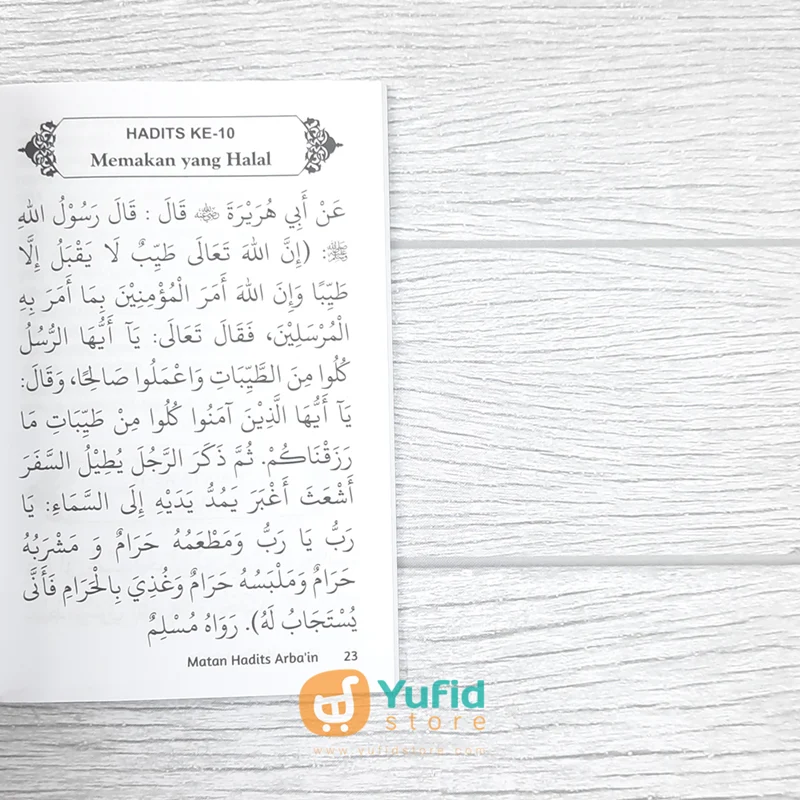 HADITS KE-10
Memakan yang Halal
عَنْ أَبِي هُرَيْرَةَ ؓ قَالَ : قَالَ رَسُوْلُ اللهِ
ﷺ: (إِنَّ اللهَ تَعَالَى طَيِّبٌ لَا يَقْبَلُ إِلَّا
طَيِّبًا وَإِنَ اللهَ أَمَرَ الْمُؤْمِنِيْنَ بِمَا أَمَرَ بِهِ
الْمُرْسَلِيْنَ، فَقَالَ تَعَالَى: يَآ أَيُّهَا الرُّسُلُ
كُلُوا مِنَ الطَّيِّبَاتِ وَاعْمَلُوا صَالِحًا، وَقَالَ:
يَآ أَيُّهَا الَّذِيْنَ آمَنُوا كُلُوا مِنْ طَيِّبَاتِ مَا
رَزَقْنَاكُمْ. ثُمَّ ذَكَرَ الرَّجُلَ يُطِيْلُ السَّفَرَ
أَشْعَثَ أَغْبَرَ يَمُدُّ يَدَيْهِ إِلَى السَّمَاءِ: يَا
رَبُّ يَا رَبُّ وَمَطْعَمُهُ حَرَامٌ وَ مَشْرَبُهُ
حَرَامٌ وَمَلْبَسُهُ حَرَامٌ وَغُذِيَ بِالْحَرَامِ فَأَنَّى
يُسْتَجَابُ لَهُ). رَوَاهُ مُسْلِمٌ
Matan Hadits Arba'in 23
Yufid
store
www.yufidstore.com